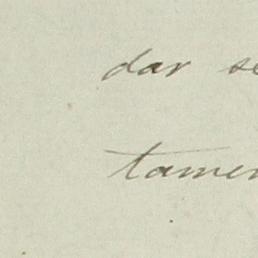 dar se
tamen